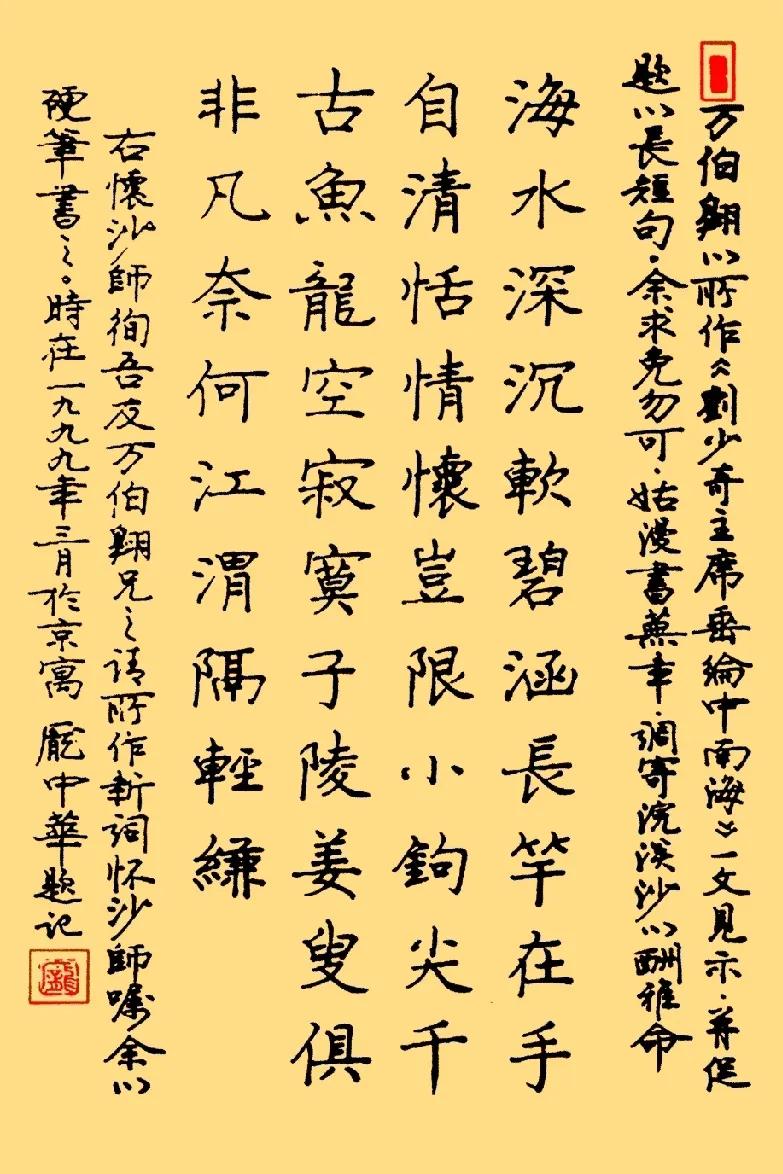 万伯翱以所作《劉少奇主席垂綸中南海》一文見示·并促
題以長短句·余求免勿可·姑漫書蕪章·調寄浣溪沙以酬雅命
海水深沉軟碧涵長竿在手
自清恬情懷豈限小鉤尖千
古魚龍空寂寞子陵姜叟俱
非凡奈何江渭隔輕縑
右懷沙師徇吾及万伯翱兄之请所作新詞怀沙師嘱余以
硬筆書之。時在一九九九年三月於京寓 龐中華題记